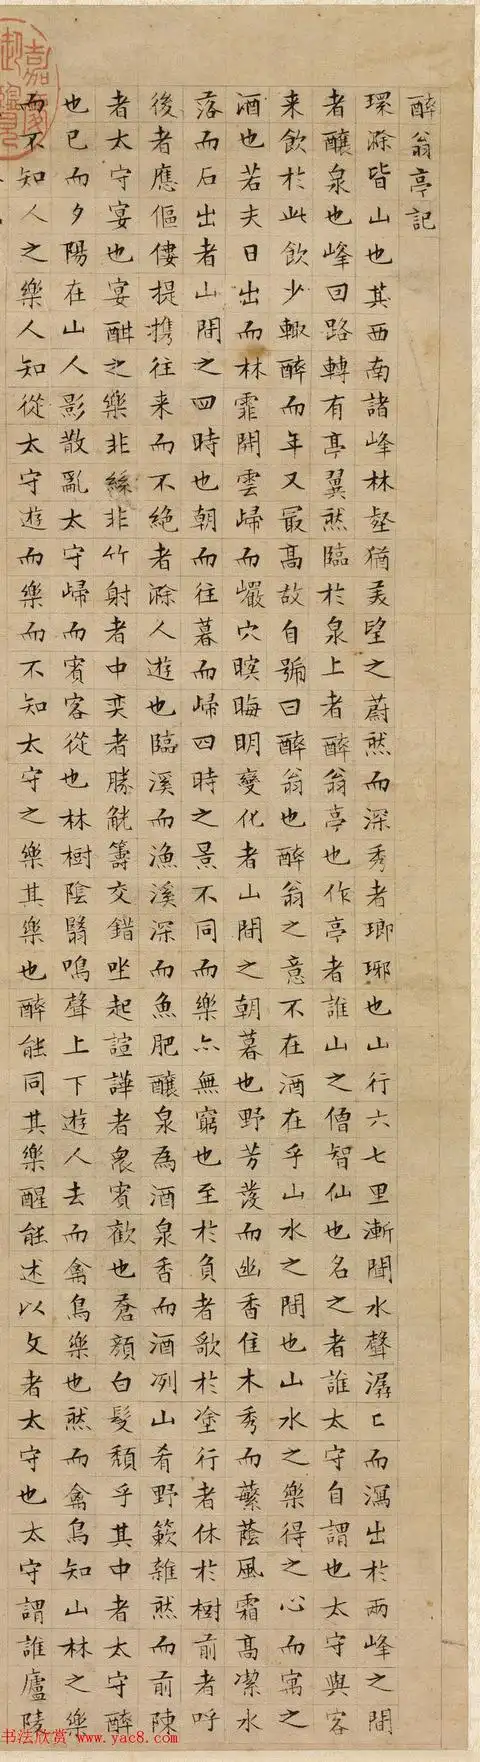 醉翁亭記
環滁皆山也其西南諸峰林壑猶美望之蔚然而深秀者瑯琊也山行六七里漸聞水聲潺〻而瀉出於兩峰之間
者釀泉也峰回路轉有亭翼然臨於泉上者醉翁亭也作亭者誰山之僧智仙也名之者誰太守自謂也太守與客
来飲於此飲少輒醉而年又最高故自號曰醉翁也醉翁之意不在酒在乎山水之間也山水之樂得之心而寓之
酒也若夫日出而林霏開雲歸而巖穴暝晦明變化者山間之朝暮也野芳發而幽香佳木秀而蘩蔭風霜高潔水
落而石出者山間之四時也朝而往暮而歸四時之景不同而樂亦無窮也至於負者歌於塗行者休於樹前者呼
後者應傴僂提携往来而不絕者滁人遊也臨溪而漁溪深而魚肥釀泉為酒泉香而酒冽山肴野簌雜然而前陳
者太守宴也宴酣之樂非絲非竹射者中奕者勝觥籌交錯坐起諠譁者衆賓歡也蒼顏白髮頹乎其中者太守醉
也已而夕陽在山人影散亂太守歸而賓客從也林樹陰翳鳴聲上下遊人去而禽鳥樂也然而禽鳥知山林之樂
而不知人之樂人知從太守遊而樂而不知太守之樂其樂也醉能同其樂醒能述以文者太守也太守謂誰廬陵
书法欣赏 www.yac8.com